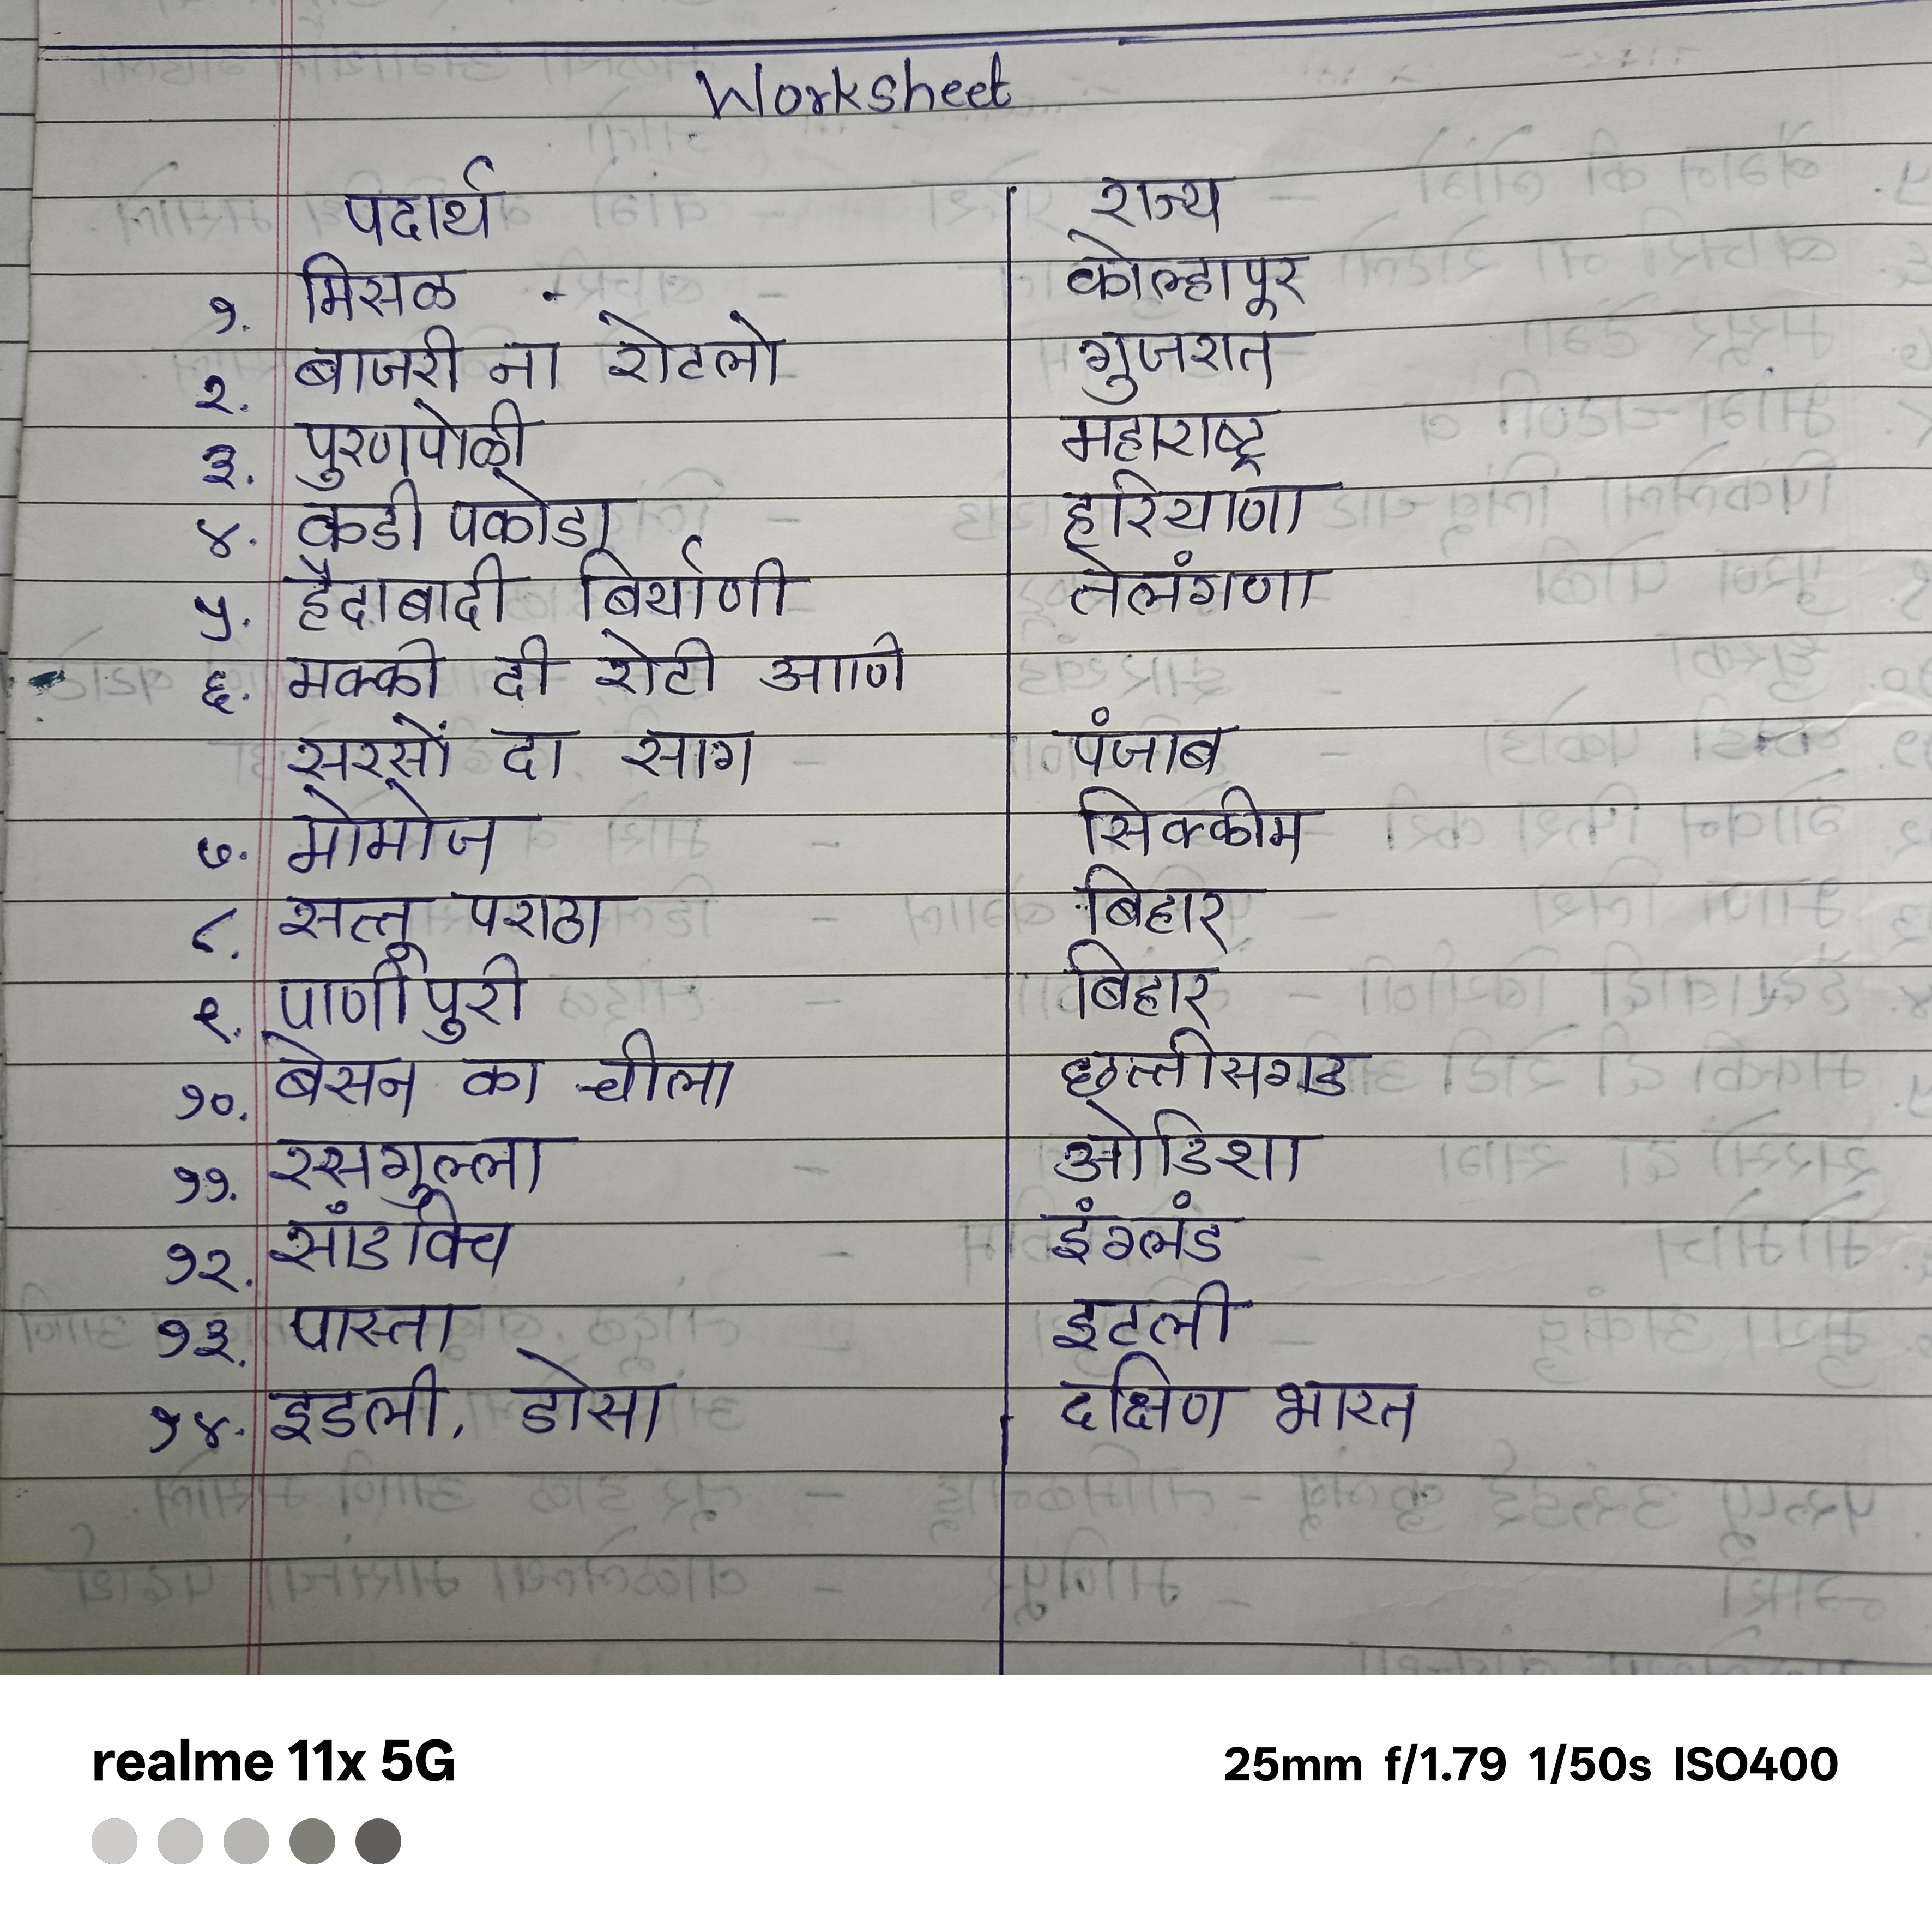 Worksheet
पदार्थ राज्य
१. मिसळ - कोल्हापूर
२. बाजरी ना रोटलो गुजरात
३. पुरणपोळी महाराष्ट्र
४. कडी पकोडा हरियाणा
५. हैद्राबादी बिर्याणी तेलंगणा
६. मक्की दी रोटी आणि
सरसों दा साग पंजाब
७. मोमोज सिक्कीम
८. सत्तू पराठा बिहार
९. पाणीपुरी बिहार
१०. बेसन का चीला छत्तीसगड
११. रसगुल्ला ओडिशा
१२. सांडविच इंग्लंड
१३. पास्ता इटली
१४. इडली, डोसा दक्षिण भारत
realme 11x 5G 25mm f/1.79 1/50s ISO400